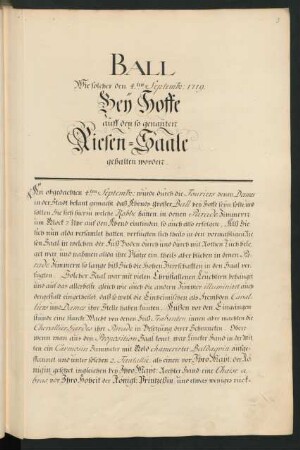 BALL
Wie solcher den 4.ten Septemb: 1719
Bey Hoffe
auff den so genanten
Riesen-Saale
gehalten worden
An obgedachten 4.ten Septemb: wurde durch die Fouriers denen Dames
in der Stadt bekant gemacht, daß Abends großer Ball bey Hoffe seyn solte und
sollten Sie sich hierin welche Robbe hätten in denen Parade Zimmern
um 7 Uhr auf den Abend einfinden, so auch also erfolget, Als Sie
sich nun alda versamlet hatten, verfügten sich in den
Saal in welchen der Fuß Boden durch und durch mit Rothen Tuch bele-
get war und nahmen alda ihre Plätze ein, theils aber blieben in denen Pa-
rade Zimmern so lange biß sich die Hohen Herrschafften in den Saal ver-
fügten. Solcher Saal war mit vielen Chrystallinen Leuchtern behangen
und auf das allerbeste gleich wie auch die andern Zimmer illuminiret auch
dergestalt eingetheilet, daß so wohl die Einheimischen als Frembden Caval-
liers und Dames ihre Stelle haben konten. Außen vor den Eingängen
stunde eine starcke Wacht von denen Fuß Trabanten, innen aber machten die
Chevalliers Gardes ihre Parade in Besetzung derer Schrancken. Ober-
wenn man aus den Proposition Saal komt, war lincker Hand in der Mit-
ten ein Carmoisin Sammeter mit Gold chamerirter Baldaquin aufge-
macht und unter solchen 2. Fauteuils als einer vor Ihro Mayt: der Kö-
nigin gesetzet, ingleichen bey Ihro Mayt: Rechter Hand eine Chaise à
bras vor Ihro Hoheit der Königl: Printzeßin, und etwas weniger rück-